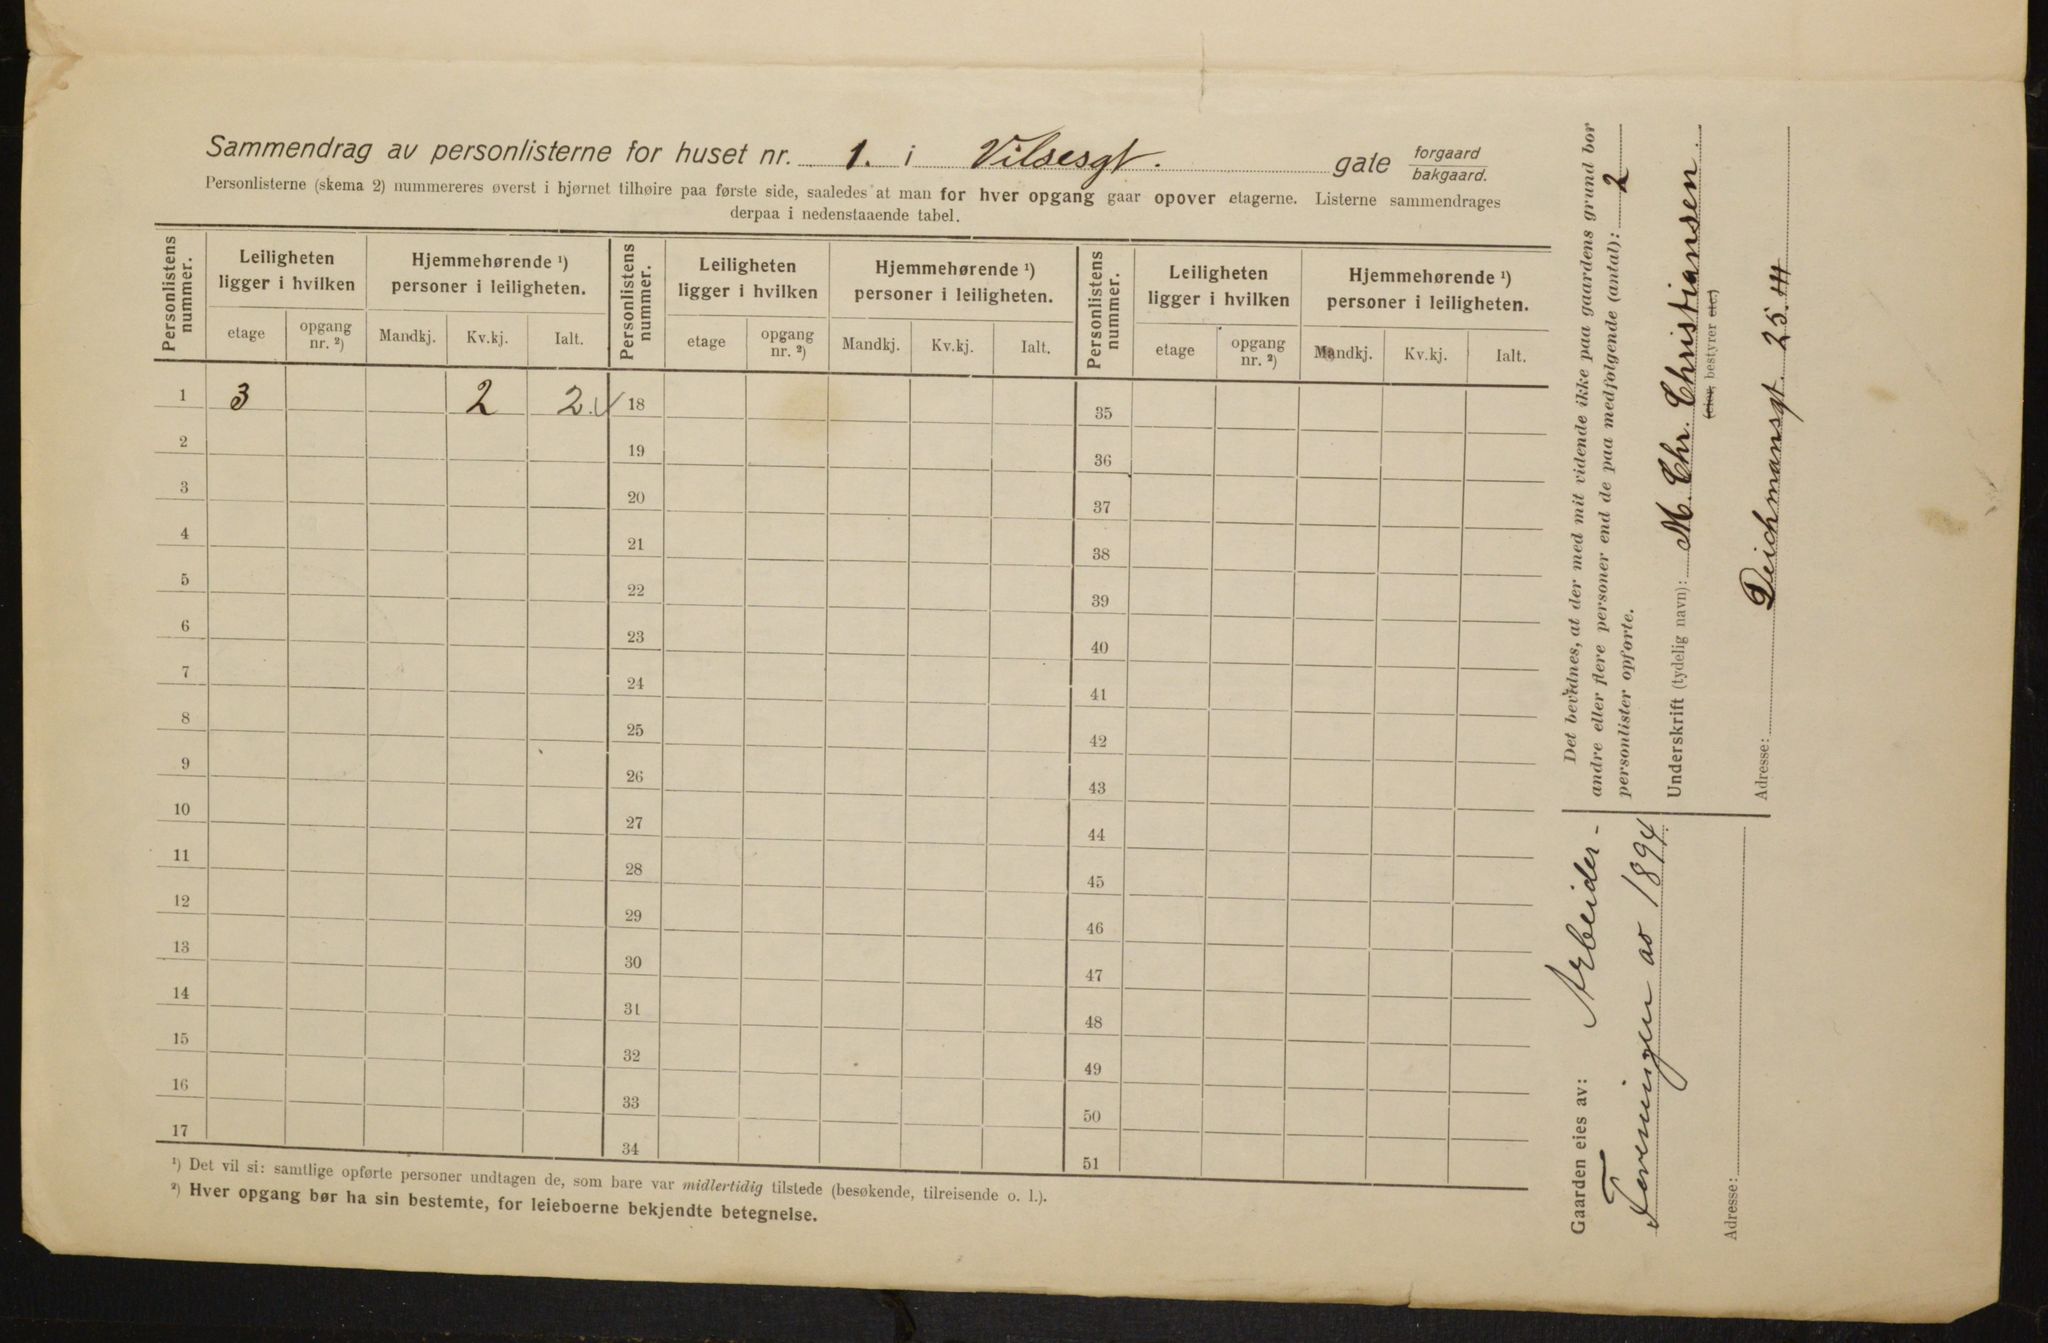 Sammendrag av personlisterne for huset nr. 1. i Vilsesgt. gate forgaard bakgaard.
Personlisterne (skema 2) nummereres øverst i hjørnet tilhøire paa første side, saaledes at man for hver opgang gaar opover etagerne. Listerne sammendrages
derpaa i nedenstaaende tabel.
Personlistens nummer. Leiligheten ligger i hvilken Hjemmehørende ¹) personer i leiligheten. Personlistens nummer. Leiligheten ligger i hvilken Hjemmehørende ¹) personer i leiligheten. Personlistens nummer. Leiligheten ligger i hvilken Hjemmehørende ¹) personer i leiligheten.
etage opgang nr. ²) Mandkj. Kv.kj. Ialt. etage opgang nr. ²) Mandkj. Kv.kj. Ialt. etage opgang nr. ²) Mandkj. Kv.kj. Ialt.
1 3 2 2. 18 35
2 19 36
3 20 37
4 21 38
5 22 39
6 23 40
7 24 41
8 25 42
9 26 43
10 27 44
11 28 45
12 29 46
13 30 47
14 31 48
15 32 49
16 33 50
17 34 51
¹) Det vil si: samtlige opførte personer undtagen de, som bare var midlertidig tilstede (besøkende, tilreisende o. l.).
²) Hver opgang bør ha sin bestemte, for leieboerne bekjendte betegnelse.
Det bevidnes, at der med mit vidende ikke paa gaardens grund bor
andre eller flere personer end de paa medfølgende (antal): 2
personlister opførte.
Underskrift (tydelig navn): M. Chr. Christiansen.
(eier, bestyrer etc.)
Adresse: Deichmansgt. 25.4
Gaarden eies av: Arbeider-
Foreningen av 1894
Adresse: